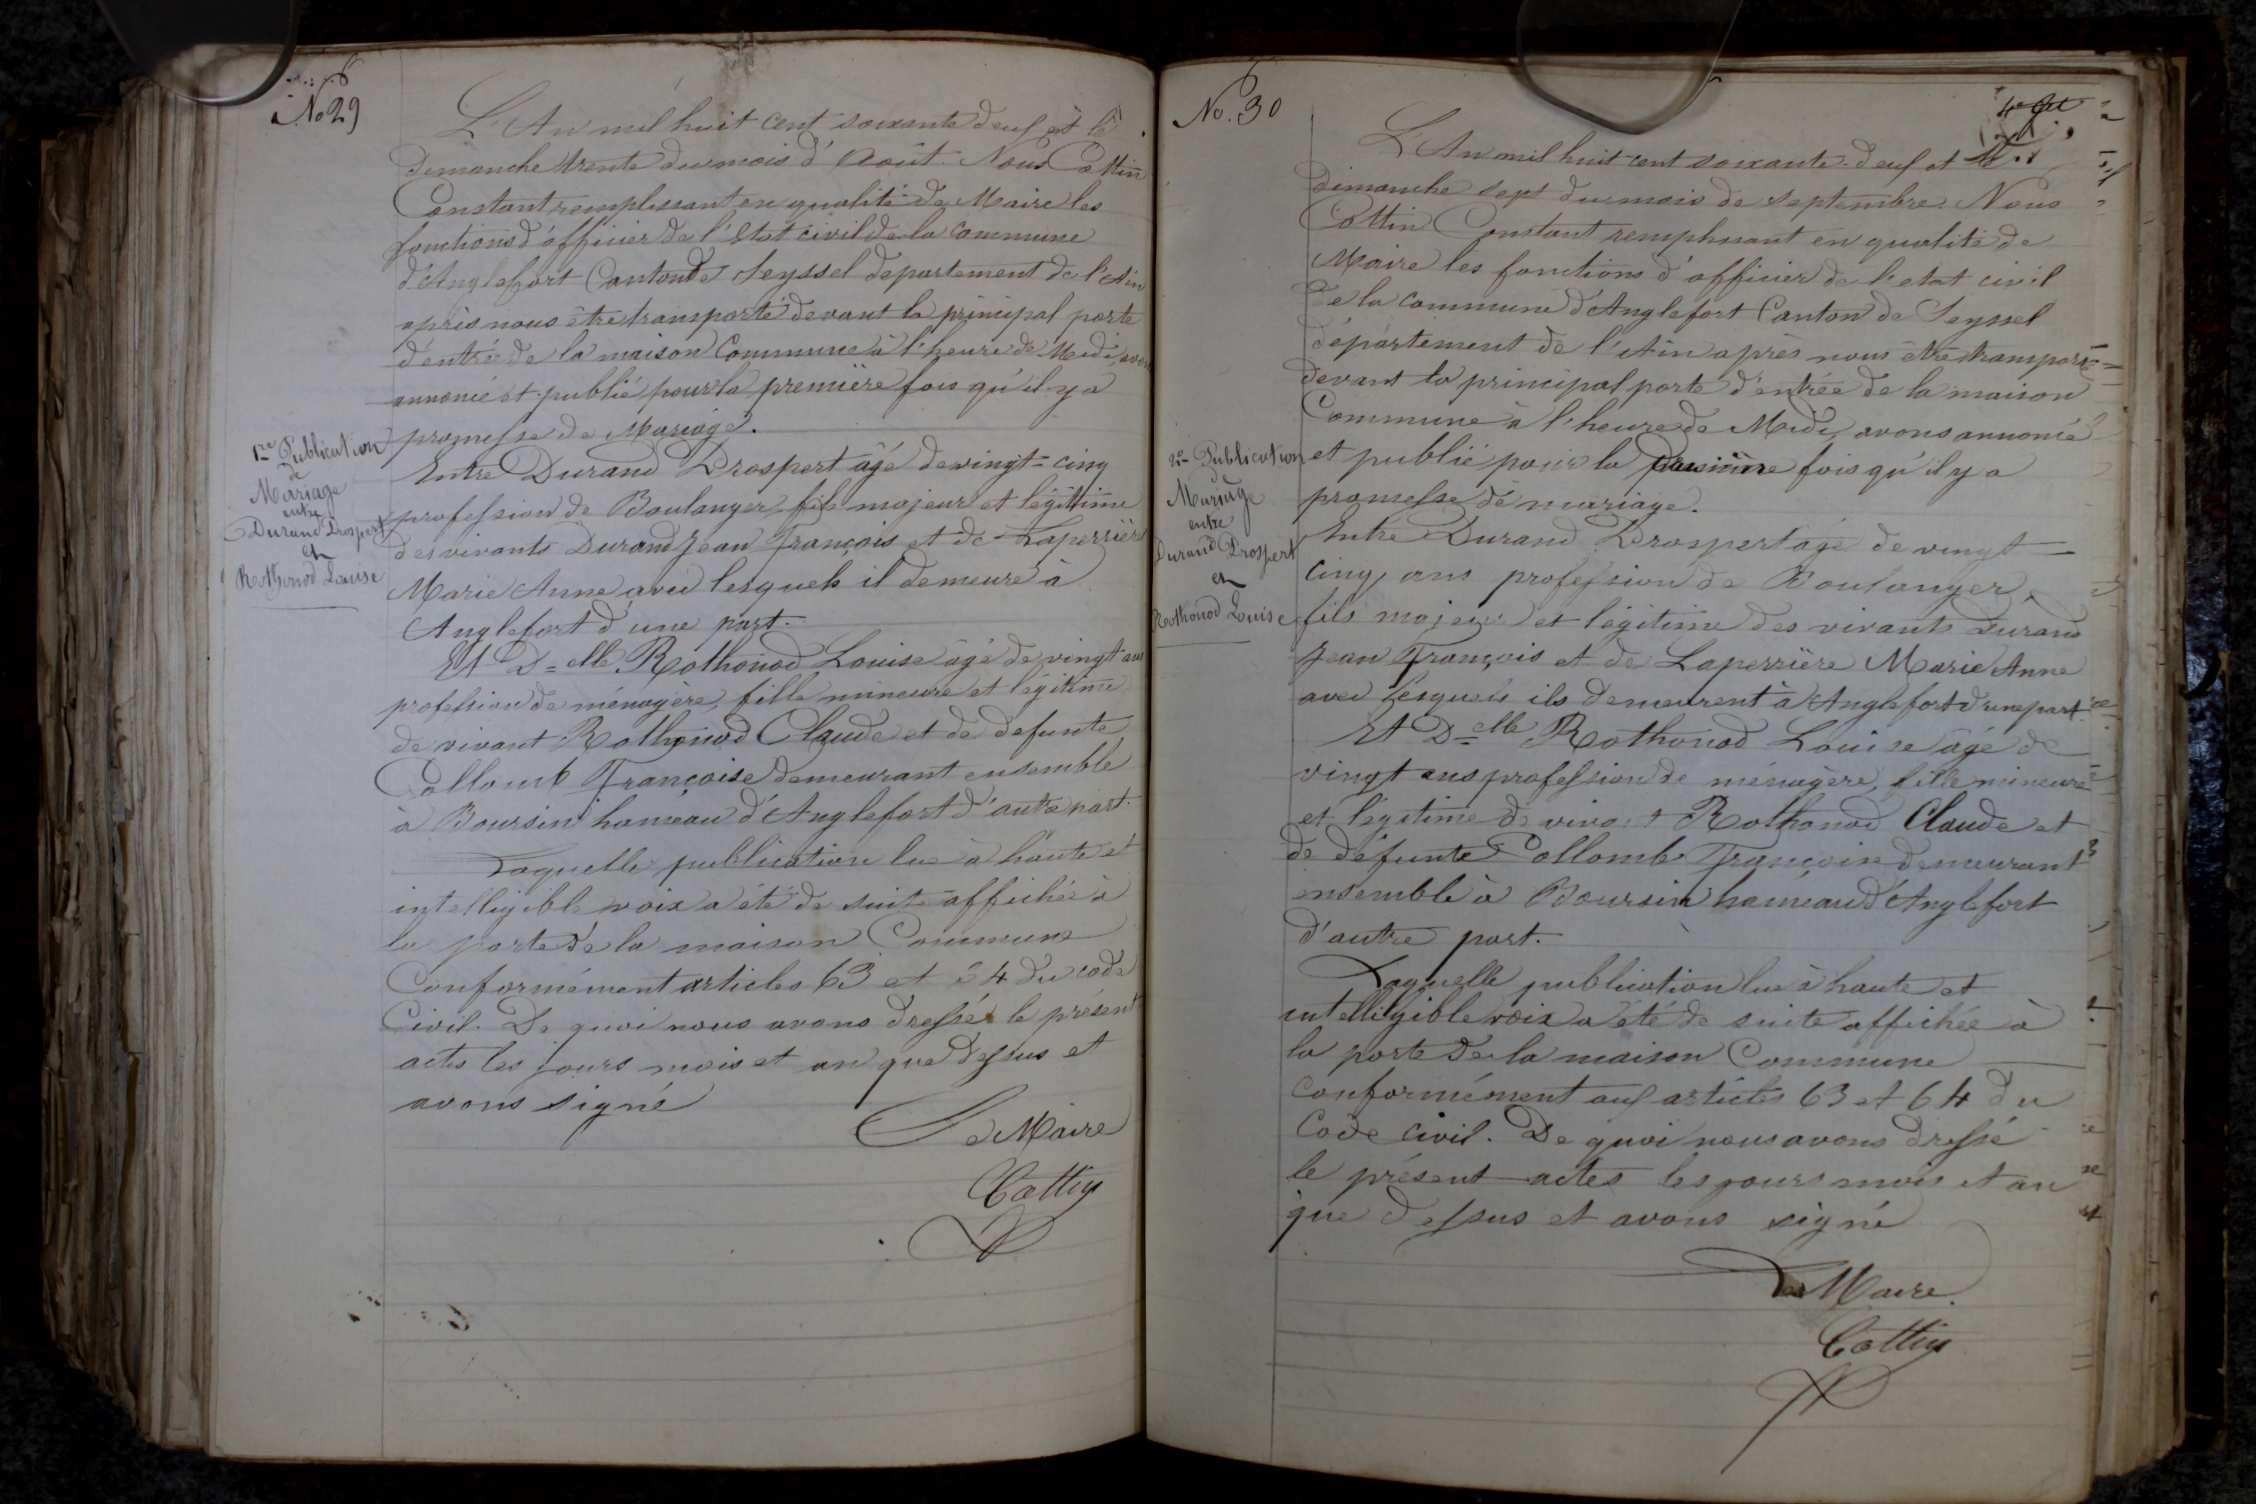 No 29
L'An mil huit cent soixante deux et le
dimanche trente du mois d'Août. Nous Cottin
Constant remplissant en qualité de Maire les
fonctions d'officier de l'Etat civil de la commune
d'Anglefort Canton de Seyssel departement de l'Ain
après nous être transporté devant la principal porte
d'entrée de la maison Commune à l'heure de Midi, avons
annoncé et publié pour la première fois qu'il y a
promesse de Mariage.
1re Publication
de
Mariage
entre
Durand Prospert
et
Rothonod Louise
Entre Durand Prospert âgé de vingt-cinq
profession de Boulanger, fils majeur et légitime
des vivants Durand Jean François et de Laperrière
Marie Anne avec lesquels il demeure à
Anglefort d'une part.
Et D-elle Rothonod Louise âgé de vingt ans
profession de ménagère, fille mineure et légitime
de vivant Rothonod Claude et de defunte
Collomb Françoise demeurant ensemble
à Boursin hameau d'Anglefort d'autre part.
Laquelle publication lue à haute et
intelligible voix a été de suite affichée à
la porte de la maison Commune
Conformément articles 63 et 64 du code
Civil. De quoi nous avons dressé le présent
actes les jours mois et an que dessus et
avons signé
Le Maire
Cottin
No. 30
L'An mil huit cent soixante-deux et le
dimanche sept du mois de septembre. Nous
Cottin Constant remplissant en qualité de
Maire les fonctions d'officier de l'etat civil
de la commune d'Anglefort Canton de Seyssel
département de l'Ain après nous être transporté
devant la principal porte d'entrée de la maison
Commune à l'heure de Midi, avons annoncé
et publié pour la fois qu'il y a
promesse de mariage.
2e Publication
Mariage
entre
Durand Prospert
et
Rothonod Louise
Entre Durand Prospert âgé de vingt
cinq, ans profession de Boulanger,
fils majeur et légitime des vivants Durand
Jean François et de Laperrière Marie Anne
avec lesquels ils demeurent à Anglefort d'une part.
Et D-elle Rothonod Louise âgé de
vingt ans profession de ménagère, fille mineure
et légitime de vivant Rothonod Claude et
de défunte Collomb Françoise demeurant
ensemble à Boursin hameau d'Anglefort
d'autre part.
Laquelle publication lue à haute et
intelligible voix a été de suite affichée à
la porte de la maison Commune
conformément aux articles 63 et 64 du
Code civil. De quoi nous avons dressé
le présent actes les jours mois et an
que dessus et avons signé
Le Maire.
Cottin